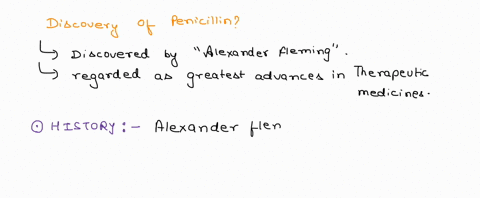 Discovery of Penicillin?
↳ Discovered by "Alexander Fleming".
↳ regarded as greatest advances in Therapeutic
medicines.
⊙ HISTORY:- Alexander flen